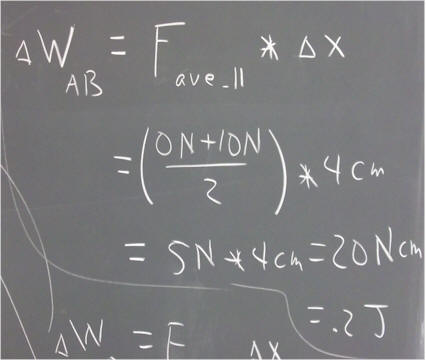 ΔW_AB = F_ave_|| * Δx
= (0N+10N / 2) * 4cm
= 5N * 4cm = 20Ncm
= .2 J
ΔW = F Δx